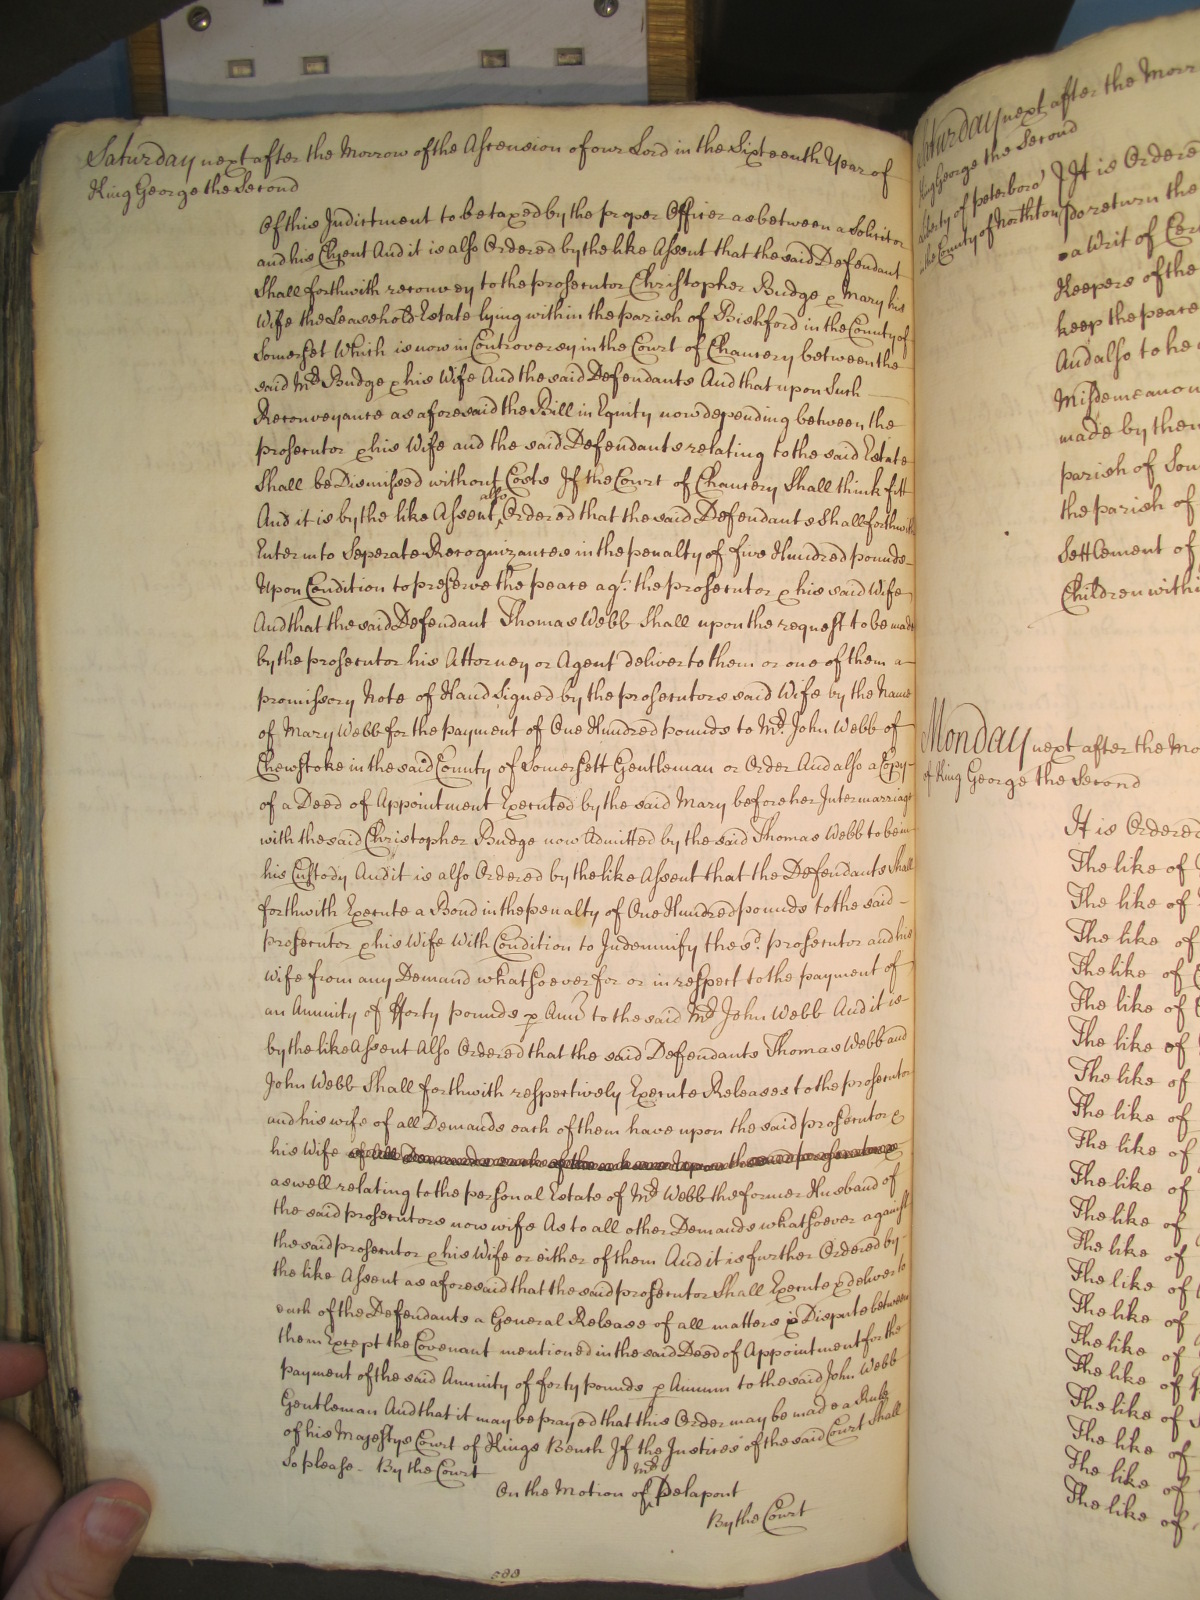 Saturday next after the Morrow of the Ascension of our Lord in the Sixteenth Year of
King George the Second
Of this Indictment to be taxed by the proper Officer as between a Solicitor
and his Clyent And it is also Ordered by the like Assent that the said Defendant
Shall forthwith reconvey to the prosecutor Christopher Budge & Mary his
Wife the Leasehold Estate lying within the parish of Bishford in the County of
Somerset Which is now in Controversy in the Court of Chancery between the
said Mr. Budge & his Wife And the said Defendants And that upon Such
Reconveyance as aforesaid the Bill in Equity now depending between the
prosecutor & his Wife and the said Defendants relating to the said Estate
Shall be Dismissed without Costs If the Court of Chancery Shall think fitt
And it is by the like Assent also Ordered that the said Defendants Shall forthwith
Enter into Seperate Recognizances in the penalty of five Hundred pounds
Upon Condition to preserve the peace agt. the prosecutor & his said Wife
And that the said Defendant Thomas Webb Shall upon the request to be made
by the prosecutor his Attorney or Agent deliver to them or one of them a
promissory Note of Hand Signed by the prosecutors said Wife by the Name
of Mary Webb for the payment of One Hundred pounds to Mr. John Webb of
Chewstoke in the said County of Somersett Gentleman or Order And also a Copy
of a Deed of Appointment Executed by the said Mary before her Intermarriage
with the said Christopher Budge now Admitted by the said Thomas Webb to be in
his Custody And it is also Ordered by the like Assent that the Defendants Shall
forthwith Execute a Bond in the penalty of One Hundred pounds to the said
prosecutor & his Wife With Condition to Indemnify the sd. prosecutor and his
Wife from any Demand whatsoever for or in respect to the payment of
an Annuity of fforty pounds p Ann to the said Mr. John Webb And it is
by the like Assent Also Ordered that the said Defendants Thomas Webb and
John Webb Shall forthwith respectively Execute Releases to the prosecutor
and his wife of all Demands each of them have upon the said prosecutor &
his Wife of all Demands each of them have upon the said prosecutor &
as well relating to the personal Estate of Mr. Webb the former Husband of
the said prosecutors now wife As to all other Demands whatsoever against
the said prosecutor & his Wife or either of them And it is further Ordered by
the like Assent as aforesaid that the said prosecutor Shall Execute & deliver to
each of the Defendants a General Release of all matters in Dispute between
them Except the Covenant mentioned in the said Deed of Appointment for the
payment of the said Annuity of forty pounds p Annum to the said John Webb
Gentleman And that it may be prayed that this Order may be made a Rule
of his Majestys Court of Kings Bench If the Justices of the said Court Shall
So please. By the Court
On the Motion of Mr. Delapont
By the Court
588
Saturday next after the Morr
King George the Second
Liberty of peterboro'
in the County of Northton
It is Ordere
do return the
a Writ of Cer
Keepers of the
keep the peace
And also to he
Misdemeanou
made by them
parish of Sou
the parish of
Settlement of
Children withi
Monday next after the Mo
of King George the Second
It is Ordered
The like of
The like of
The like of
The like of
The like of
The like of
The like of
The like of
The like of
The like of
The like of
The like of
The like of
The like of
The like of
The like of
The like of
The like of
The like of
The like of